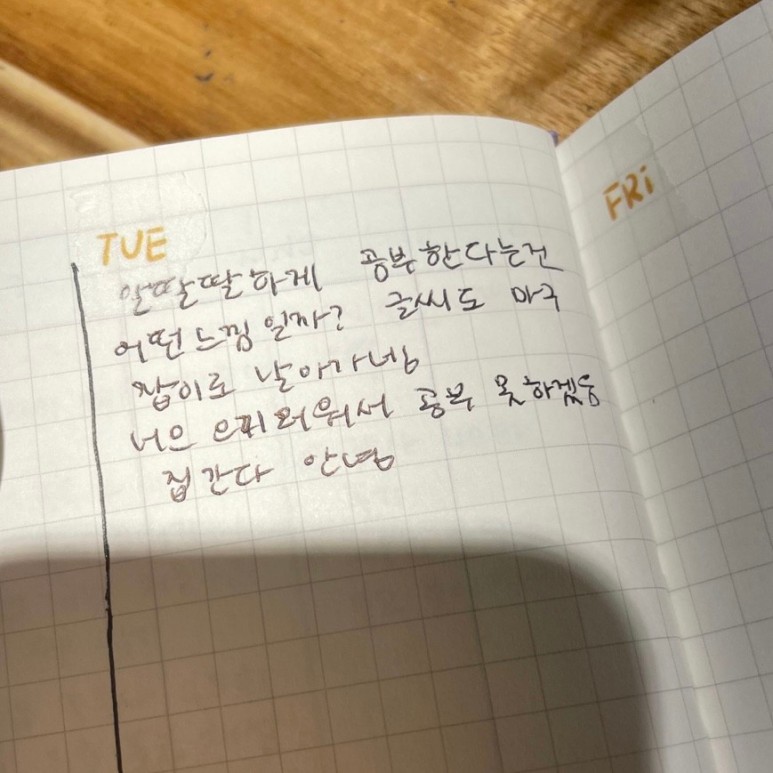 TUE
알딸딸하게 공부한다는건
어떤느낌일까? 글씨도 마구
잡이로 날아가네
공부 못하겠음
집간다 안녕
FRi